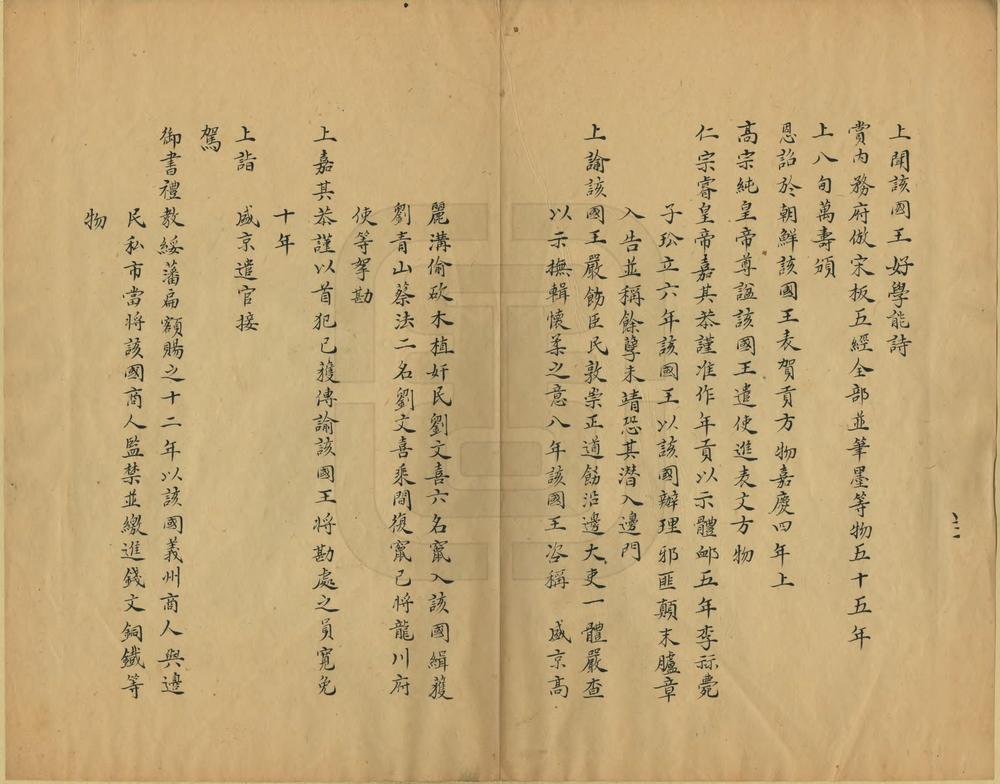 上聞該國王好學能詩
賞內務府倣宋板五經全部並筆墨等物五十五年
上八旬萬壽頒
恩詔於朝鮮該國王表賀貢方物嘉慶四年上
高宗純皇帝尊諡該國王遣使進表文方物
仁宗睿皇帝嘉其恭謹准作年貢以示體卹五年李祘薨
子玜立六年該國王以該國辦理邪匪顛末臚章
入告並稱餘孽未靖恐其潛入邊門
上諭該國王嚴飭臣民敦崇正道飭沿邊大吏一體嚴查
以示撫輯懷柔之意八年該國王咨稱 盛京高
麗溝偷砍木植奸民劉文喜六名竄入該國緝獲
劉青山蔡法二名劉文喜乘間復竄已將龍川府
使等拏勘
上嘉其恭謹以首犯已獲傳諭該國王將勘處之員寬免
十年
上詣 盛京遣官接
駕
御書禮教綏藩扁額賜之十二年以該國義州商人與邊
民私市當將該國商人監禁並繳進錢文銅鐵等
物